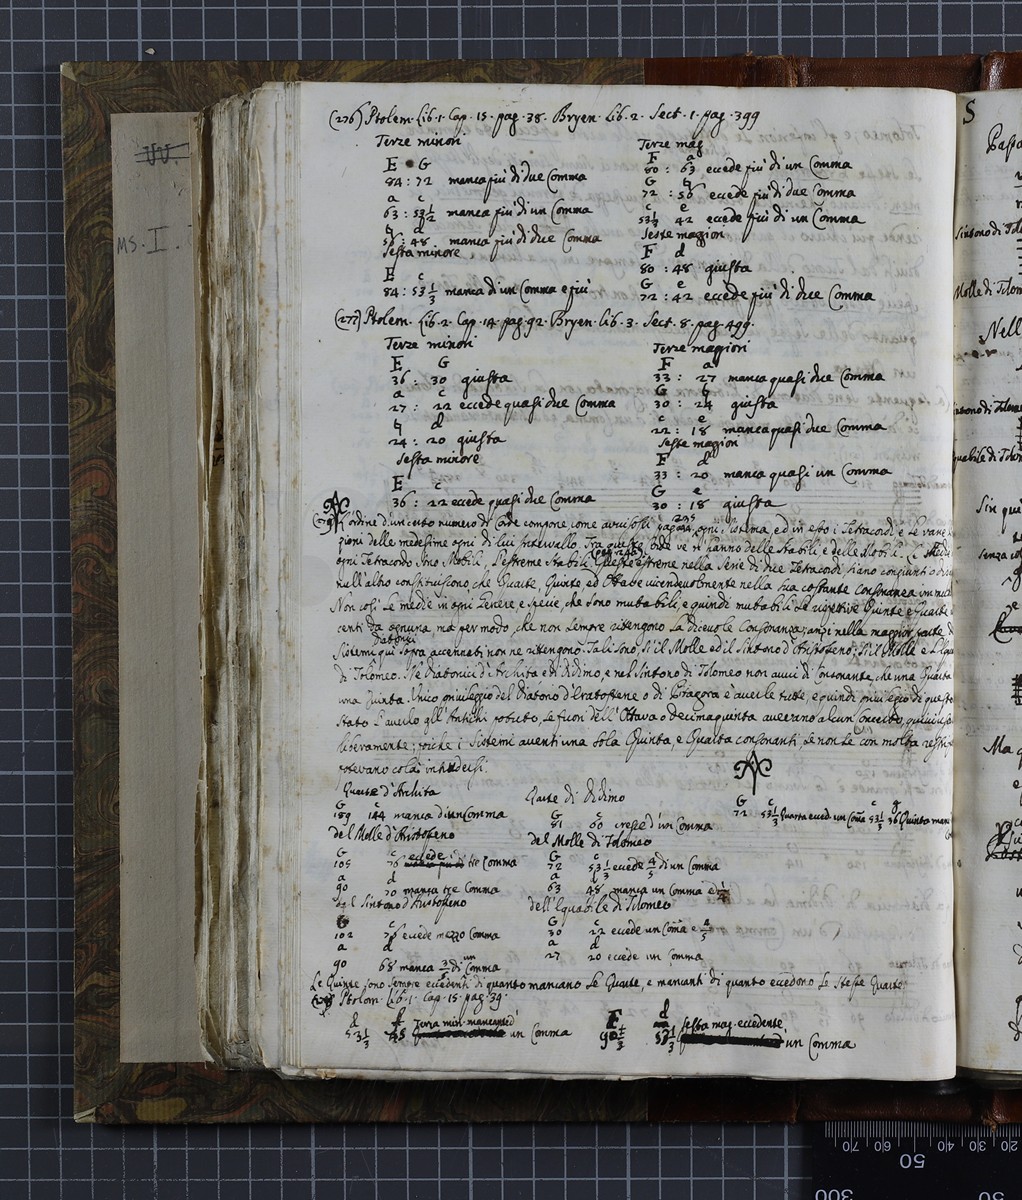 VV.
MS. I.
(276) Ptolem. Lib. 1. Cap. 15. pag. 38. Bryen. Lib. 2. Sect. 1. pag. 399
Terze minori
E G
84 : 72 manca piú di due Comma
a c
63 : 53 1/2 manca piú di un Comma
♮ d
56 : 48 manca piú di due Comma
Sesta minore
E c
84 : 53 1/3 manca di un Comma e piú
Terze mag
F a
80 : 63 eccede piú di un Comma
G ♮
72 : 56 eccede piú di due Comma
c e
53 1/3 42 eccede piú di un Comma
Seste maggiori
F d
80 : 48 giusta
G e
72 : 42 eccede piú di due Comma
(277) Ptolem. Lib. 2. Cap. 14. pag. 92. Bryen. Lib. 3. Sect. 8. pag. 499.
Terze minori
E G
36 : 30 giusta
a c
27 : 22 eccede quasi due Comma
♮ d
24 : 20 giusta
Sesta minore
E c
36 : 22 eccede quasi due Comma
Terze maggiori
F a
33 : 27 manca quasi due Comma
G ♮
30 : 24 giusta
c e
22 : 18 manca quasi due Comma
Seste maggiori
F d
33 : 20 manca quasi un Comma
G e
30 : 18 giusta
L'ordine d'un certo numero di Corde compone come avvisossi pag. ogni sistema, ed in esso i Tetracordi e le varie
zioni delle medesime ogni di lui Intervallo. Tra queste Corde ve n'hanno delle Stabili e delle Mobili. Le Medie
ogni Tetracordo sono Mobili, l'estreme Stabili. Queste estreme nella Serie di due Tetracordi siano congiunti o
nell'altro constituiscono che Quarte, Quinte ed Ottave vicendevolmente nella sua costante Consonanza
Non cosí le medie in ogni Genere e Specie, che sono mutabili, e quindi mutabili le rispettive Quinte e Quarte
centi da ognuna ma per modo che non sempre ritengono la dicevole Consonanza; anzi nella maggior parte de
Sistemi Diatonici qui sopra accennati non ne ritengono. Tali sono, sí il Molle ed il Sintono di Aristosseno; sí il Molle e l'Equa
di Tolomeo. Ne Diatonici d'Archita e di Didimo, e nel Sintono di Tolomeo non avvi di Consonante, che una Quarta
una Quinta. Unico privilegio del Diatono d'Eratostene o di Pitagora è averle tutte, e quindi privilegio di questo
stato l'averlo gl'Antichi potuto, se fuori dell'Ottava o decimaquinta averano alcun Concerto,
liberamente; poiche i Sistemi aventi una sola Quinta, e Quarta consonanti, se non se con molta
potevano colá introdursi.
Quarte d'Archita
G c
189 144 manca d'un Comma
del Molle d'Aristosseno
G c
105 76 eccede tre Comma
a d
90 70 manca tre Comma
del Sintono d'Aristosseno
G c
102 76 eccede mezzo Comma
a d
90 68 manca 3/5 di un Comma
Quarte di Didimo
G c
81 60 cresce d'un Comma
del Molle di Tolomeo
G c
72 53 1/3 eccede 4/5 di un Comma
a d
63 48 manca un Comma e 1/4
dell'Equabile di Tolomeo
G c
30 22 eccede un Coma e 4/5
a d
27 20 eccede un Comma
G c
72 53 1/3 Quarta eccede un Coma
c g
53 1/3 36 Quinta man
Le Quinte sono sempre eccedenti di quanto mancano le Quarte, e mancanti di quanto eccedono le stesse Quarte.
Ptolem. Lib. 1. Cap. 15. pag. 39.
d f Terza min. mancante
53 1/3 45 di un Comma
F d Sesta mag. eccedente
90 53 1/3 di un Comma
S
Sintono di Tolo
Molle di Tolom
Nell
Sintono di Tolome
quabile di Tolo
Sin qui
senza co
Ma q
70 60 50 40 30 20
50
300